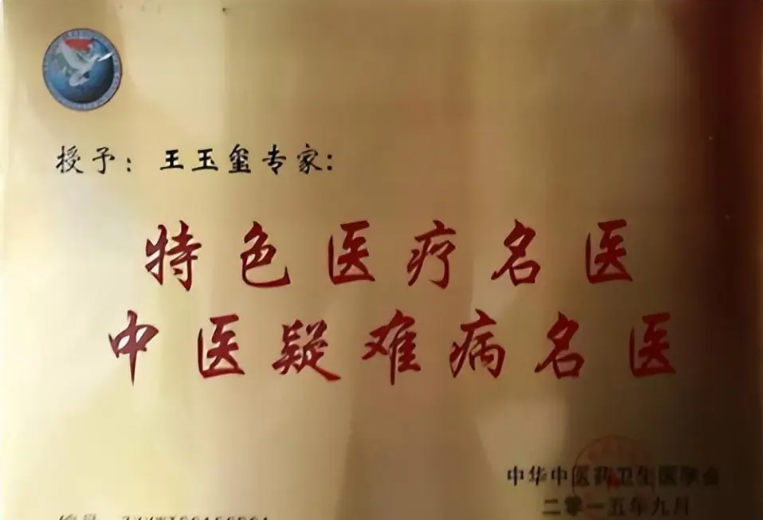 授予：王玉玺专家：
特色医疗名医
中医疑难病名医
中华中医药卫生医学会
二零一五年九月